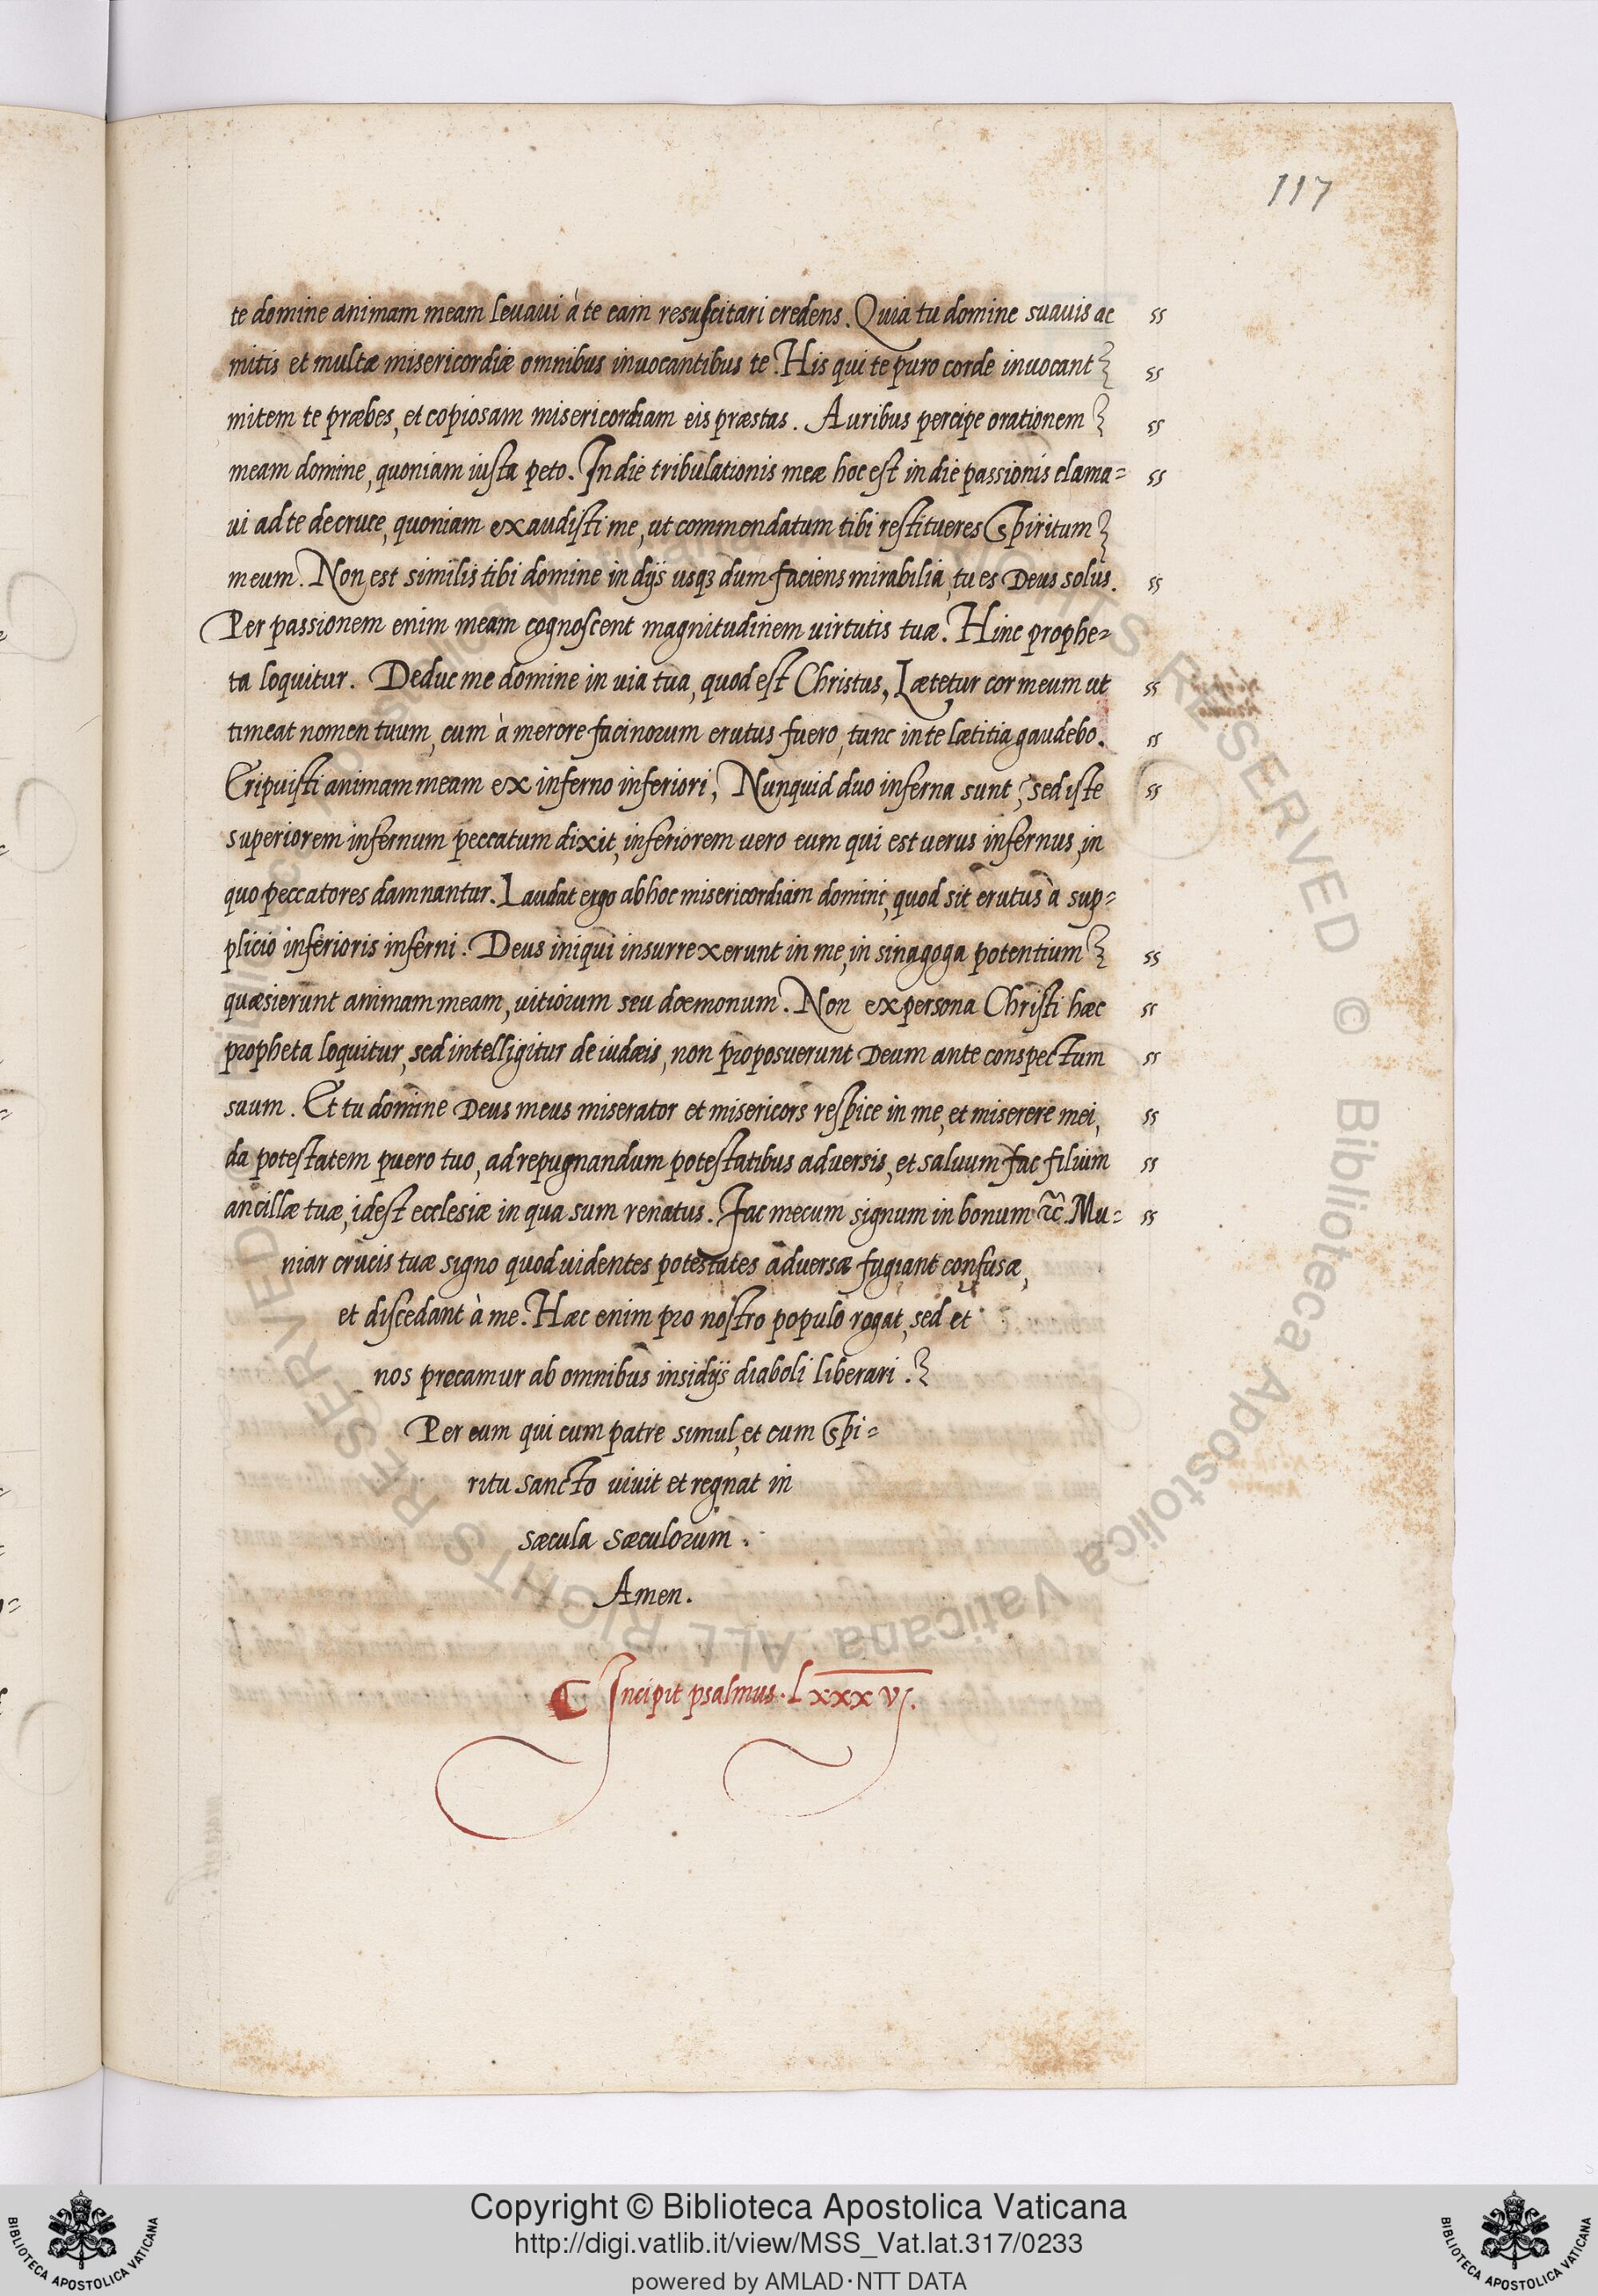 117
te domine animam meam levavi à te eam resuscitari credens. Quia tu domine suavis ac ss
mitis et multæ misericordiæ omnibus invocantibus te. His qui te puro corde invocant ss
mitem te præbes, et copiosam misericordiam eis præstas. Auribus percipe orationem ss
meam domine, quoniam iusta peto. In die tribulationis meæ hoc est in die passionis clama= ss
ui ad te de cruce, quoniam exaudisti me, ut commendatum tibi restitueres Spiritum
meum. Non est similis tibi domine in dijs usqꝫ dum faciens mirabilia, tu es Deus solus. ss
Per passionem enim meam cognoscent magnitudinem uirtutis tuæ. Hinc prophe=
ta loquitur. Deduc me domine in uia tua, quod est Christus, Lætetur cor meum ut ss
timeat nomen tuum, cum à merore facinorum erutus fuero, tunc in te lætitia gaudebo. ss
Eripuisti animam meam ex inferno inferiori, Nunquid duo inferna sunt? sed iste ss
superiorem infernum peccatum dixit, inferiorem uero eum qui est uerus infernus, in
quo peccatores damnantur. Laudat ergo ab hoc misericordiam domini, quod sit erutus à sup=
plicio inferioris inferni. Deus iniqui insurrexerunt in me, in sinagoga potentium ss
quæsierunt animam meam, uitiorum seu dæmonum. Non ex persona Christi hæc ss
propheta loquitur, sed intelligitur de iudæis, non proposuerunt Deum ante conspectum ss
suum. Et tu domine Deus meus miserator et misericors respice in me, et miserere mei, ss
da potestatem puero tuo, ad repugnandum potestatibus adversis, et saluum fac filium ss
ancillæ tuæ, idest ecclesiæ in qua sum renatus. Fac mecum signum in bonum ⁊c̃. Mu= ss
niar crucis tuæ signo quod uidentes potestates adversæ fugiant confusæ,
et discedant à me. Hæc enim pro nostro populo rogat, sed et
nos precamur ab omnibus insidijs diaboli liberari.
Per eum qui cum patre simul, et cum Spi=
ritu sancto uiuit et regnat in
sæcula sæculorum.
Amen.
Incipit psalmus. LXXXVJ.
© Biblioteca Apostolica Vaticana ALL RIGHTS RESERVED
Copyright © Biblioteca Apostolica Vaticana
http://digi.vatlib.it/view/MSS_Vat.lat.317/0233
powered by AMLAD·NTT DATA
BIBLIOTECA APOSTOLICA VATICANA
BIBLIOTECA APOSTOLICA VATICANA